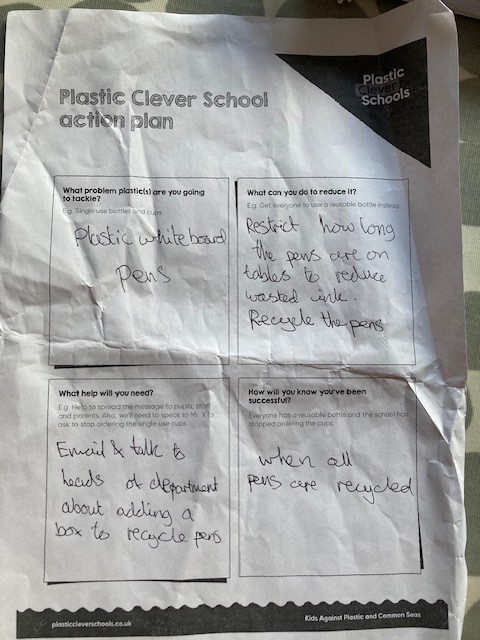 Plastic
Clever
Schools
Plastic Clever School
action plan
What problem plastic(s) are you going
to tackle?
Eg. Single use bottles and cups
Plastic whiteboard
pens
What can you do to reduce it?
E.g. Get everyone to use a reusable bottle instead
Restrict how long
the pens are on
tables to reduce
wasted ink.
Recycle the pens
What help will you need?
E.g. Help to spread the message to pupils, staff
and parents. Also, we'll need to speak to Mr. X to
ask to stop ordering the single use cups
Email & talk to
heads of department
about adding a
box to recycle pens
How will you know you've been
successful?
Everyone has a reusable bottle and the school has
stopped ordering the cups.
when all
pens are recycled
plasticcleverschools.co.uk
Kids Against Plastic and Common Seas